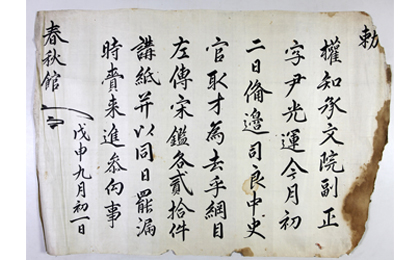 勅
權知承文院副正
字尹光運今月初
二日備邊司良中史
官取才為去乎網目
左傳宋鑑各貳拾件
講紙并以同日罷漏
時賫来進叅向事
戊申九月初一日
春秋館